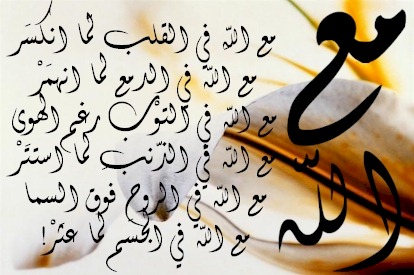 مع
الله
مع الله في القلب لما انكسَر
مع الله في الدمع لما انهمَرْ
مع الله في التوْب رغم الهوى
مع الله في الذّنبِ لما استترْ
مع الله في الروح فوق السما
مع الله في الجسم لما عثرْ!